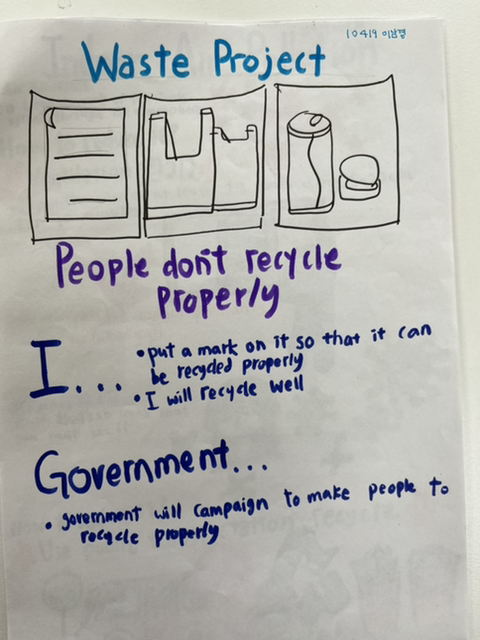 10419 이남경
Waste Project
People don't recycle
properly
I...
• put a mark on it so that it can
be recycled properly
• I will recycle well
Government...
• government will campaign to make people to
recycle properly